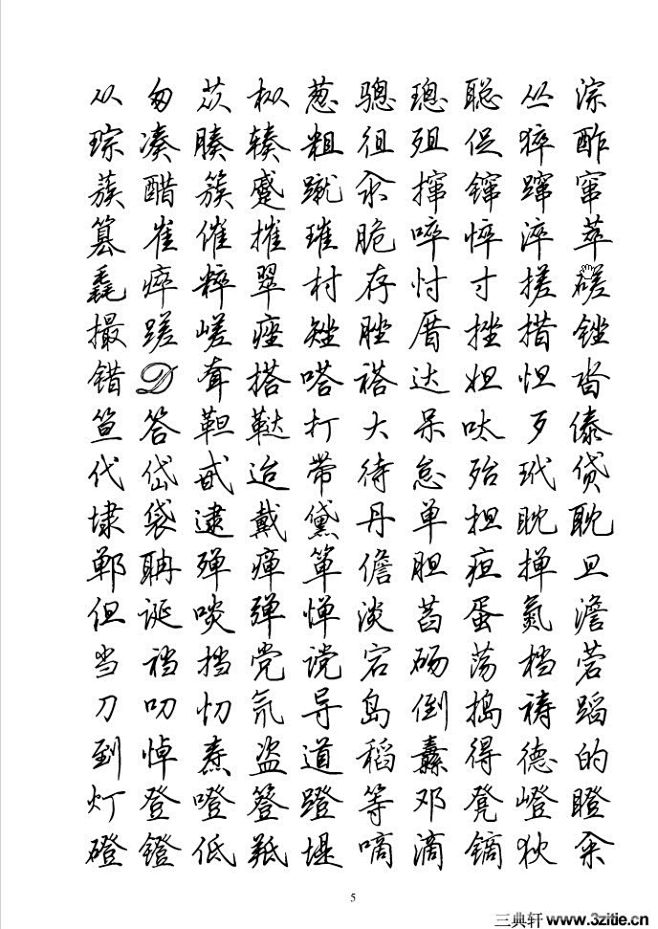 从匆苁枞葱骢璁聪丛淙
琮凑腠辏粗徂殂促猝酢
蔟醋簇蹙蹴汆撺镩蹿窜
篡崔催摧璀脆啐悴淬萃
毳瘁粹翠村存忖寸搓磋
撮蹉嵯痤矬脞厝挫措锉
错D耷搭嗒褡达妲怛沓
笪答靼鞑打大呆呔歹傣
代岱甙迨带待怠殆玳贷
埭袋逮戴黛丹单担眈耽
郸聃殚瘅箪儋胆疸掸旦
但诞啖弹惮淡萏蛋氮澹
当裆挡党谠宕砀荡档菪
刀叨忉氘导岛倒捣祷蹈
到悼焘盗道稻纛得德的
灯登噔簦蹬等邓凳嶝瞪
磴镫低羝堤嘀滴镝狄籴
5
三典轩 www.3zitie.cn